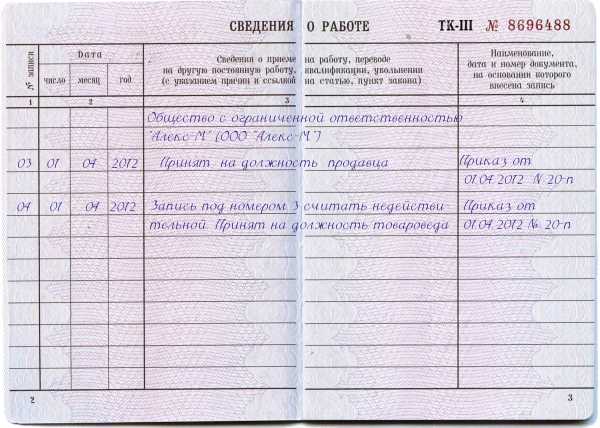 СВЕДЕНИЯ О РАБОТЕ
ТК-III № 8696488
№ записи
Дата
число
месяц
год
Сведения о приеме на работу, переводе
на другую постоянную работу, квалификации, увольнении
(с указанием причин и ссылкой на статью, пункт закона)
Наименование,
дата и номер документа,
на основании которого
внесена запись
1 2 3 4
Общество с ограниченной ответственностью
"Алекс-М" (ООО "Алекс-М")
03 01 04 2012 Принят на должность продавца Приказ от
01.04.2012 № 20-п
04 01 04 2012 Запись под номером 3 считать недействи- Приказ от
тельной. Принят на должность товароведа 01.04.2012 № 20-п
2
3